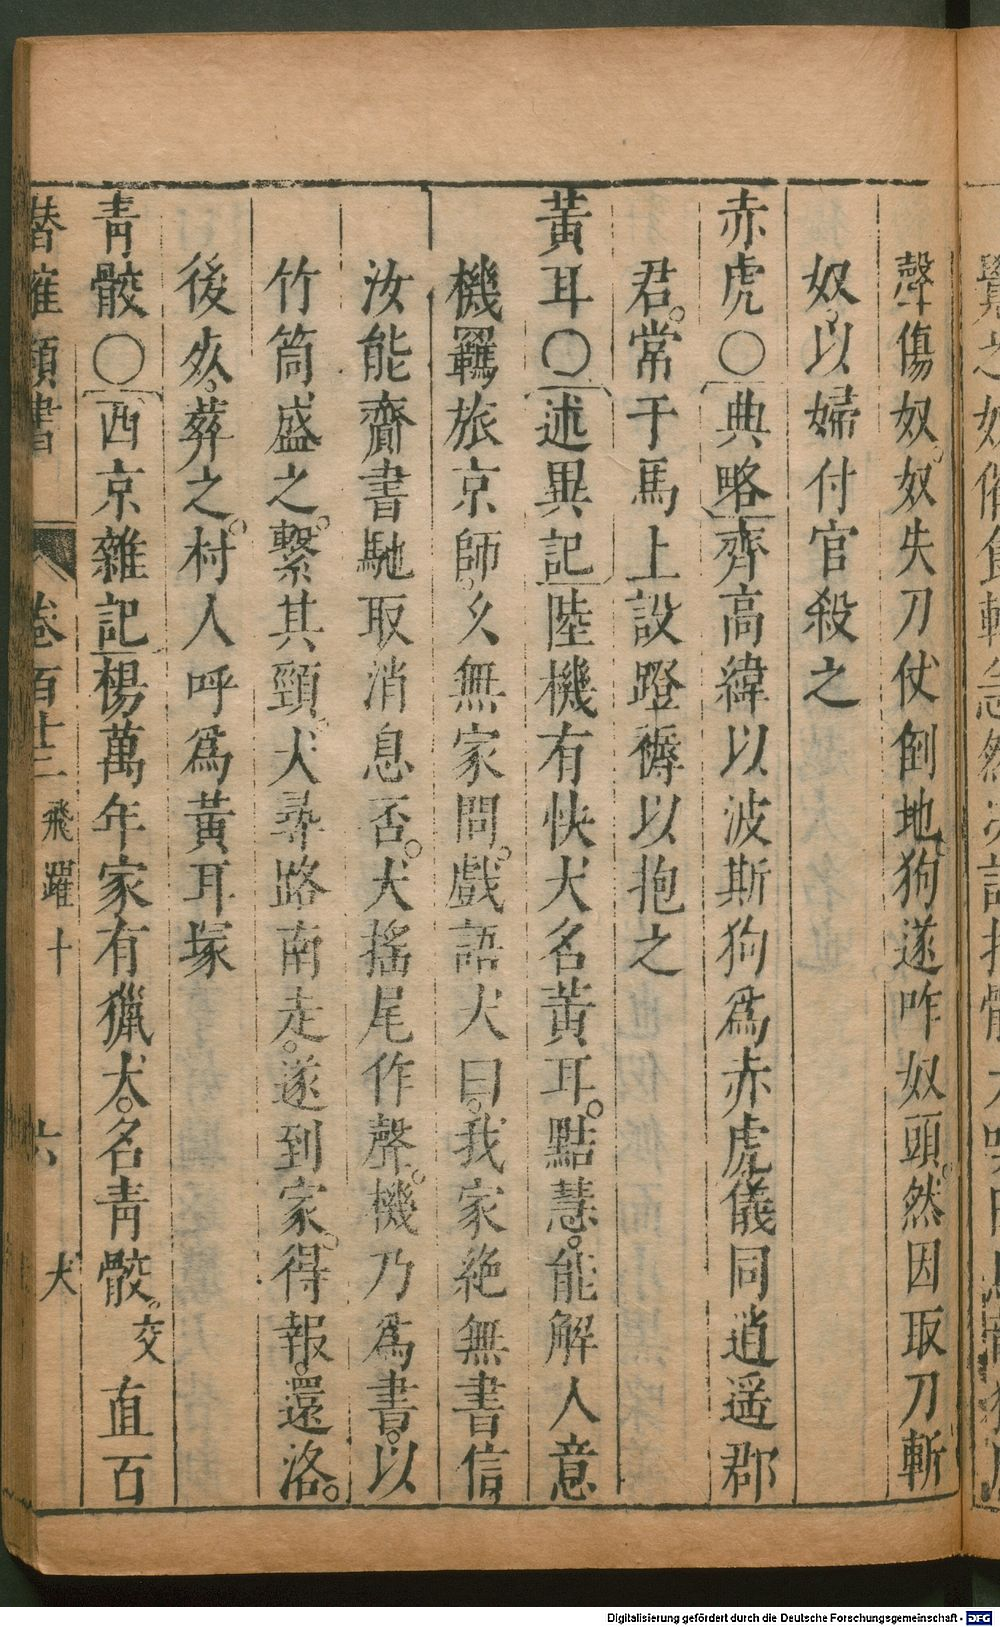 聲傷奴奴失刀仗倒地狗遂咋奴頭然因取刀斬
奴以婦付官殺之
赤虎○典略齊高緯以波斯狗爲赤虎儀同逍遥郡
君常于馬上設蹬褥以抱之
黃耳○述異記陸機有快犬名黃耳黠慧能解人意
機羈旅京師久無家問戲語犬曰我家絶無書信
汝能齎書馳取消息否犬搖尾作聲機乃爲書以
竹筒盛之繫其頸犬尋路南走遂到家得報還洛
後死葬之村人呼爲黃耳塚
青骹○西京雜記楊萬年家有獵犬名青骹交直百
卷百十二 飛躍十 六 犬
Digitalisierung gefördert durch die Deutsche Forschungsgemeinschaft - DFG